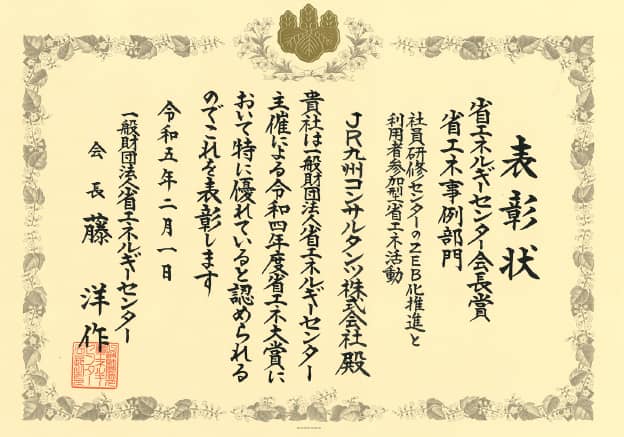 表彰状
省エネルギーセンター会長賞
省エネ事例部門
社員研修センターのZEB化推進と
利用者参加型省エネ活動
JR九州コンサルタンツ株式会社 殿
貴社は一般財団法人省エネルギーセンター
主催による令和四年度省エネ大賞に
おいて特に優れていると認められる
のでこれを表彰します
令和五年二月一日
一般財団法人省エネルギーセンター
会長 藤 洋作